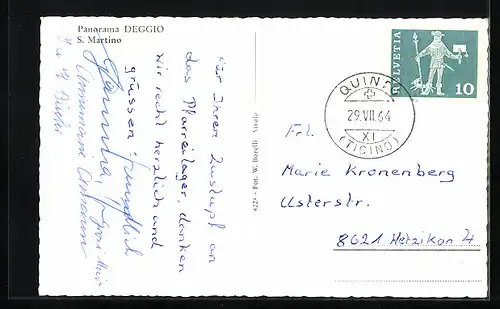 Panorama DEGGIO
S. Martino
Für Ihren Zustupf an
das Pfarreilager, danken
wir recht herzlich und
grüssen: freundlich
4229 - Fot. W. Borelli - Airolo
HELVETIA
10
QUINTO
29.VII.64
XI
(TICINO)
Frl.
Marie Kronenberg
Usterstr.
8621 Wetzikon 4